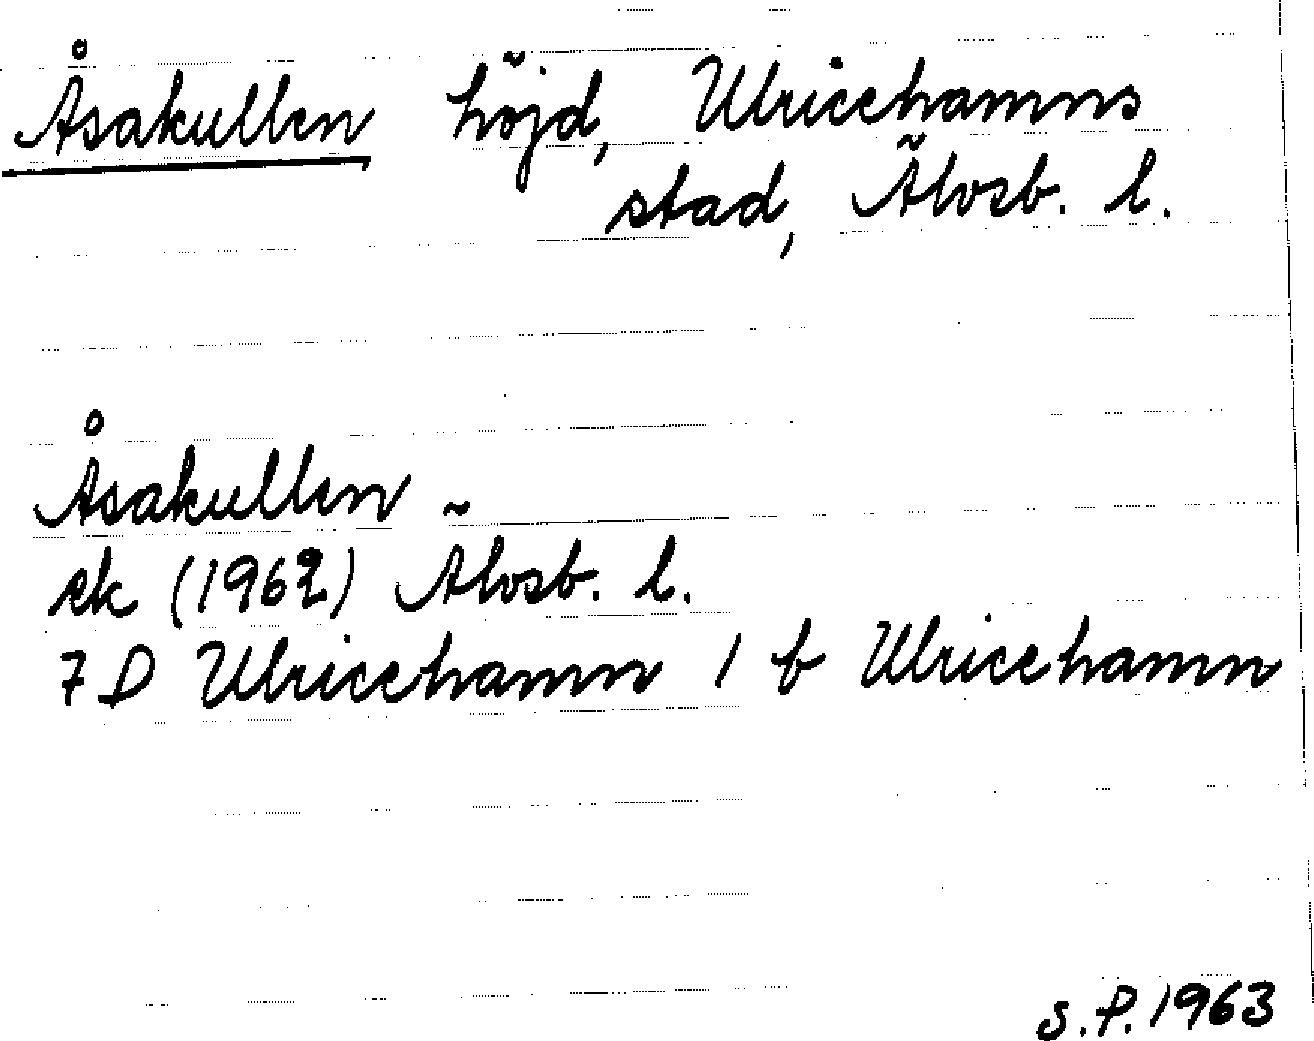 Åsakullen höjd, Ulricehamns
stad, Älvsb. l.
Åsakullen
ek (1962) Älvsb. l.
7 D Ulricehamn 1 b Ulricehamn
S.P. 1963